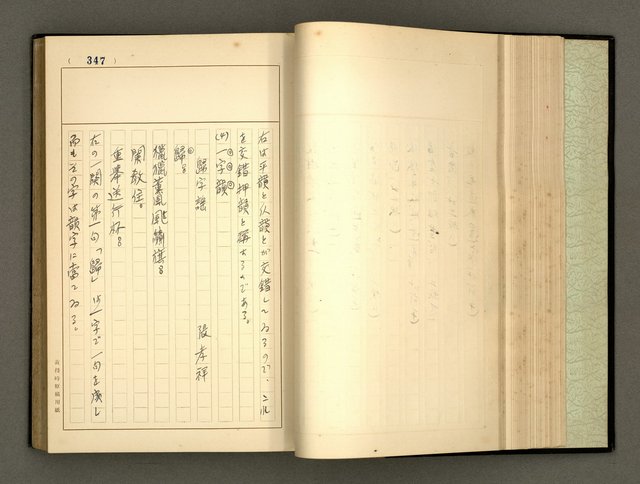 ( 347 )
右は平韻と仄韻とが交錯してゐるので、コレ
を交錯押韻と稱するのである。
(4) 一字韻
歸字謠 張孝祥
歸。
獵獵薰風颭繡旗。
闌教住。
重擧送行杯。
右の一闋の第一句「歸」は一字で一句を成し
而もその字は韻字に當てゐる。
黃得時原稿用紙